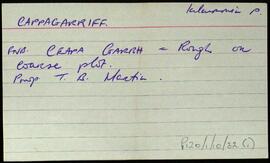 Kilcummin P.
CAPPAGARRIFF
FNB. CEAPA GARBH = Rough or
coarse plot.
Prop T. B. Martin.
P120/1/10/32 (i)